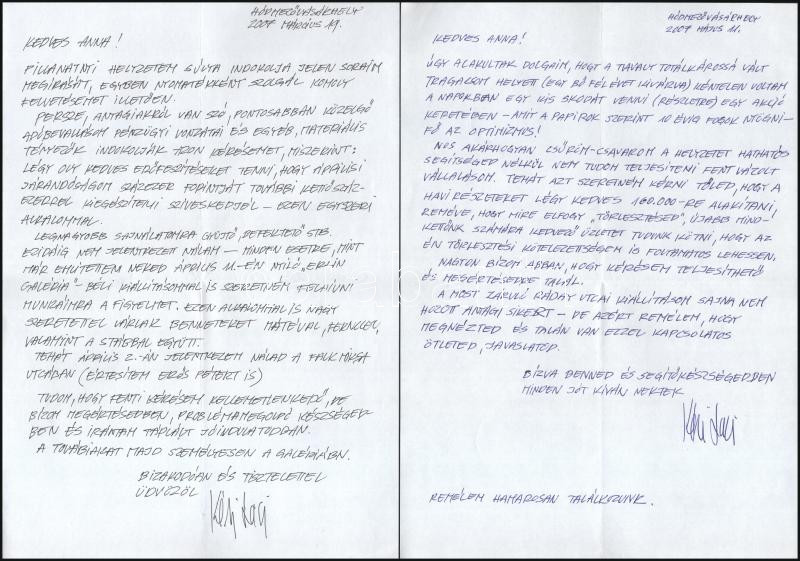 HÓDMEZŐVÁSÁRHELY
2007 MÁRCIUS 19.
KEDVES ANNA!
PILLANATNYI HELYZETEM SÚLYA INDOKOLJA JELEN SORAIM
MEGÍRÁSÁT, EGYBEN NYOMATÉKKÉNT SZOLGÁL KOMOLY
FELVETÉSEMET ILLETŐEN.
PERSZE, ANYAGIAKRÓL VAN SZÓ, PONTOSABBAN KÖZELGŐ
ADÓBEVALLÁSOM PÉNZÜGYI VONZATAI ÉS EGYÉB, MATERIÁLIS
TÉNYEZŐK INDOKOLJÁK AZON KÉRÉSEMET, MISZERINT:
LÉGY OLY KEDVES ERŐFESZÍTÉSEKET TENNI, HOGY ÁPRILISI
JÁRANDÓSÁGOM SZÁZEZER FORINTJÁT TOVÁBBI KETTŐSZÁZ-
EZERREL KIEGÉSZÍTENI SZÍVESKEDJÉL – EZEN EGYSZERI
ALKALOMMAL.
LEGNAGYOBB SAJNÁLATOMRA GYŰJTŐ, BEFEKTETŐ STB.
EZIDÁIG NEM JELENTKEZETT NÁLAM – MINDEN ESETRE, MINT
MÁR EMLÍTETTEM NEKED ÁPRILIS 11.-ÉN NYÍLÓ "ERLIN
GALÉRIA"-BELI KIÁLLÍTÁSOMMAL IS SZERETNÉM FELHÍVNI
MUNKÁIMRA A FIGYELMET. EZEN ALKALOMMAL IS NAGY
SZERETETTEL VÁRLAK BENNETEKET MÁTÉVAL, FERNCCEL,
VALAMINT A STÁBBAL EGYÜTT.
TEHÁT ÁPRILIS 2.-ÁN JELENTKEZEM NÁLAD A FALK MIKSA
UTCÁBAN (ÉRTESÍTEM ERŐS PÉTERT IS)
TUDOM, HOGY FENTI KÉRÉSEM KELLEMETLENKEDŐ, DE
BÍZOM MEGÉRTÉSEDBEN, PROBLÉMAMEGOLDÓ KÉSZSÉGED-
BEN ÉS IRÁNTAM TÁPLÁLT JÓINDULATODBAN.
A TOVÁBBIAKAT MAJD SZEMÉLYESEN A GALÉRIÁBAN.
BIZAKODÓAN ÉS TISZTELETTEL
ÜDVÖZÖL
Kéri Laci
HÓDMEZŐVÁSÁRHELY
2007 MÁJUS 11.
KEDVES ANNA!
ÚGY ALAKULTAK DOLGAIM, HOGY A TAVALY TOTÁLKÁROSSÁ VÁLT
TRAGACSOM HELYETT (EGY BŐ FÉL ÉVET KIVÁRVA) KÉNTELEN VOLTAM
A NAPOKBAN EGY KIS SKODÁT VENNI (RÉSZLETRE) EGY AKCIÓ
KERETÉBEN – AMIT A PAPÍROK SZERINT 10 ÉVIG FOGOK NYÖGNI –
FŐ AZ OPTIMIZMUS!
NOS AKÁRHOGYAN ZSŰRÖM-CSAVAROM A HELYZETET HATHATÓS
SEGÍTSÉGED NÉLKÜL NEM TUDOM TELJESÍTENI FENT VÁZOLT
VÁLLALÁSOM. TEHÁT AZT SZERETNÉM KÉRNI TŐLED, HOGY A
HAVI RÉSZLETEKET LÉGY KEDVES 160.000-RE ALAKÍTANI,
REMÉLVE, HOGY MIRE ELFOGY "TÖRLESZTÉSED", ÚJABB MIND-
KETTŐNK SZÁMÁRA KEDVEZŐ ÜZLETET TUDUNK KÖTNI, HOGY AZ
ÉN TÖRLESZTÉSI KÖTELEZETTSÉGEM IS FOLYAMATOS LEHESSEN.
NAGYON BÍZOM ABBAN, HOGY KÉRÉSEM TELJESÍTHETŐ
ÉS MEGÉRTÉSEDRE TALÁL.
A MOST ZÁRULÓ RÁDAY UTCAI KIÁLLÍTÁSOM SAJNA NEM
HOZOTT ANYAGI SIKERT – DE AZÉRT REMÉLEM, HOGY
MEGNÉZTED ÉS TALÁN VAN EZZEL KAPCSOLATOS
ÖTLETED, JAVASLATOD.
BÍZVA BENNED ÉS SEGÍTŐKÉSZSÉGEDBEN
MINDEN JÓT KÍVÁN NEKTEK
Kéri Laci
REMÉLEM HAMAROSAN TALÁLKOZUNK.